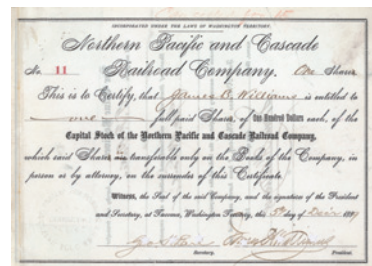 INCORPORATED UNDER THE LAWS OF WASHINGTON TERRITORY.
Northern Pacific and Cascade
No. 11 Railroad Company. One Shares
This is to Certify, that James B. Williams is entitled to
one full paid Shares, of One Hundred Dollars each, of the
Capital Stock of the Northern Pacific and Cascade Railroad Company,
which said Shares is transferable only on the Books of the Company, in
person or by attorney, on the surrender of this Certificate.
Witness, the Seal of the said Company, and the signatures of the President
and Secretary, at Tacoma, Washington Territory, this 5th day of
Secretary. President.